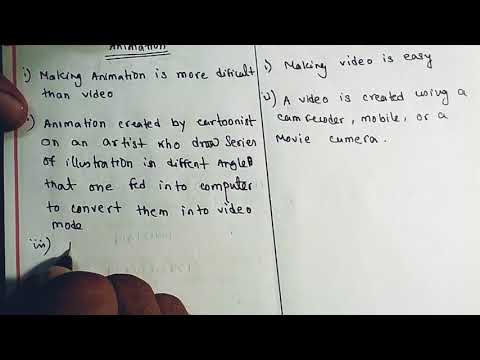 Animation
i) Making Animation is more dificult
than video
ii) Animation created by cartoonist
on an artist who draw series
of illustration in diffent angles
that one fed into computer
to convert them into video
mode
iii)
i) Making video is easy
ii) A video is created using a
camrecoder, mobile, or a
Movie cumera.